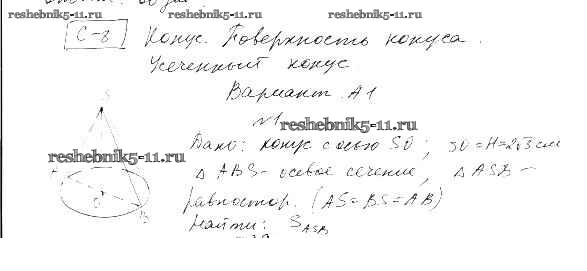 reshebnik5-11.ru reshebnik5-11.ru reshebnik5-11.ru
С-8 Конус. Поверхность конуса.
Усеченный конус
Вариант А1
№1
reshebnik5-11.ru
Дано: конус с осью SO; SO=H=2√3 см
reshebnik5-11.ru
△ ABS - осевое сечение, △ ASB -
равностор. (AS=BS=AB)
Найти: S_ASB
S
A
O
B